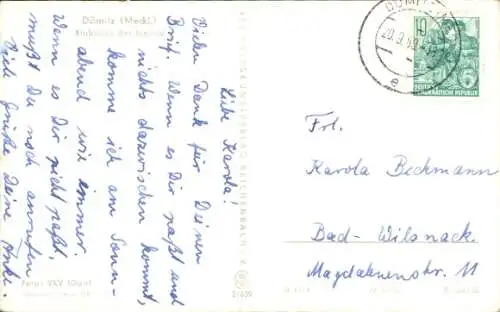 Dömitz (Meckl.)
Liebe Karola!
Vielen Dank für Deinen
Brief. Wenn es Dir paßt und
nichts dazwischen kommt,
komme ich am Sonn-
abend wie immer.
Wenn es Dir nicht paßt,
mußt Du noch anrufen
Viele Grüße Deine Anke.
10
DEUTSCHE
DEMOKRATISCHE REPUBLIK
Frl.
Karola Beckmann
Bad-Wilsnack.
Magdalenenstr. 11